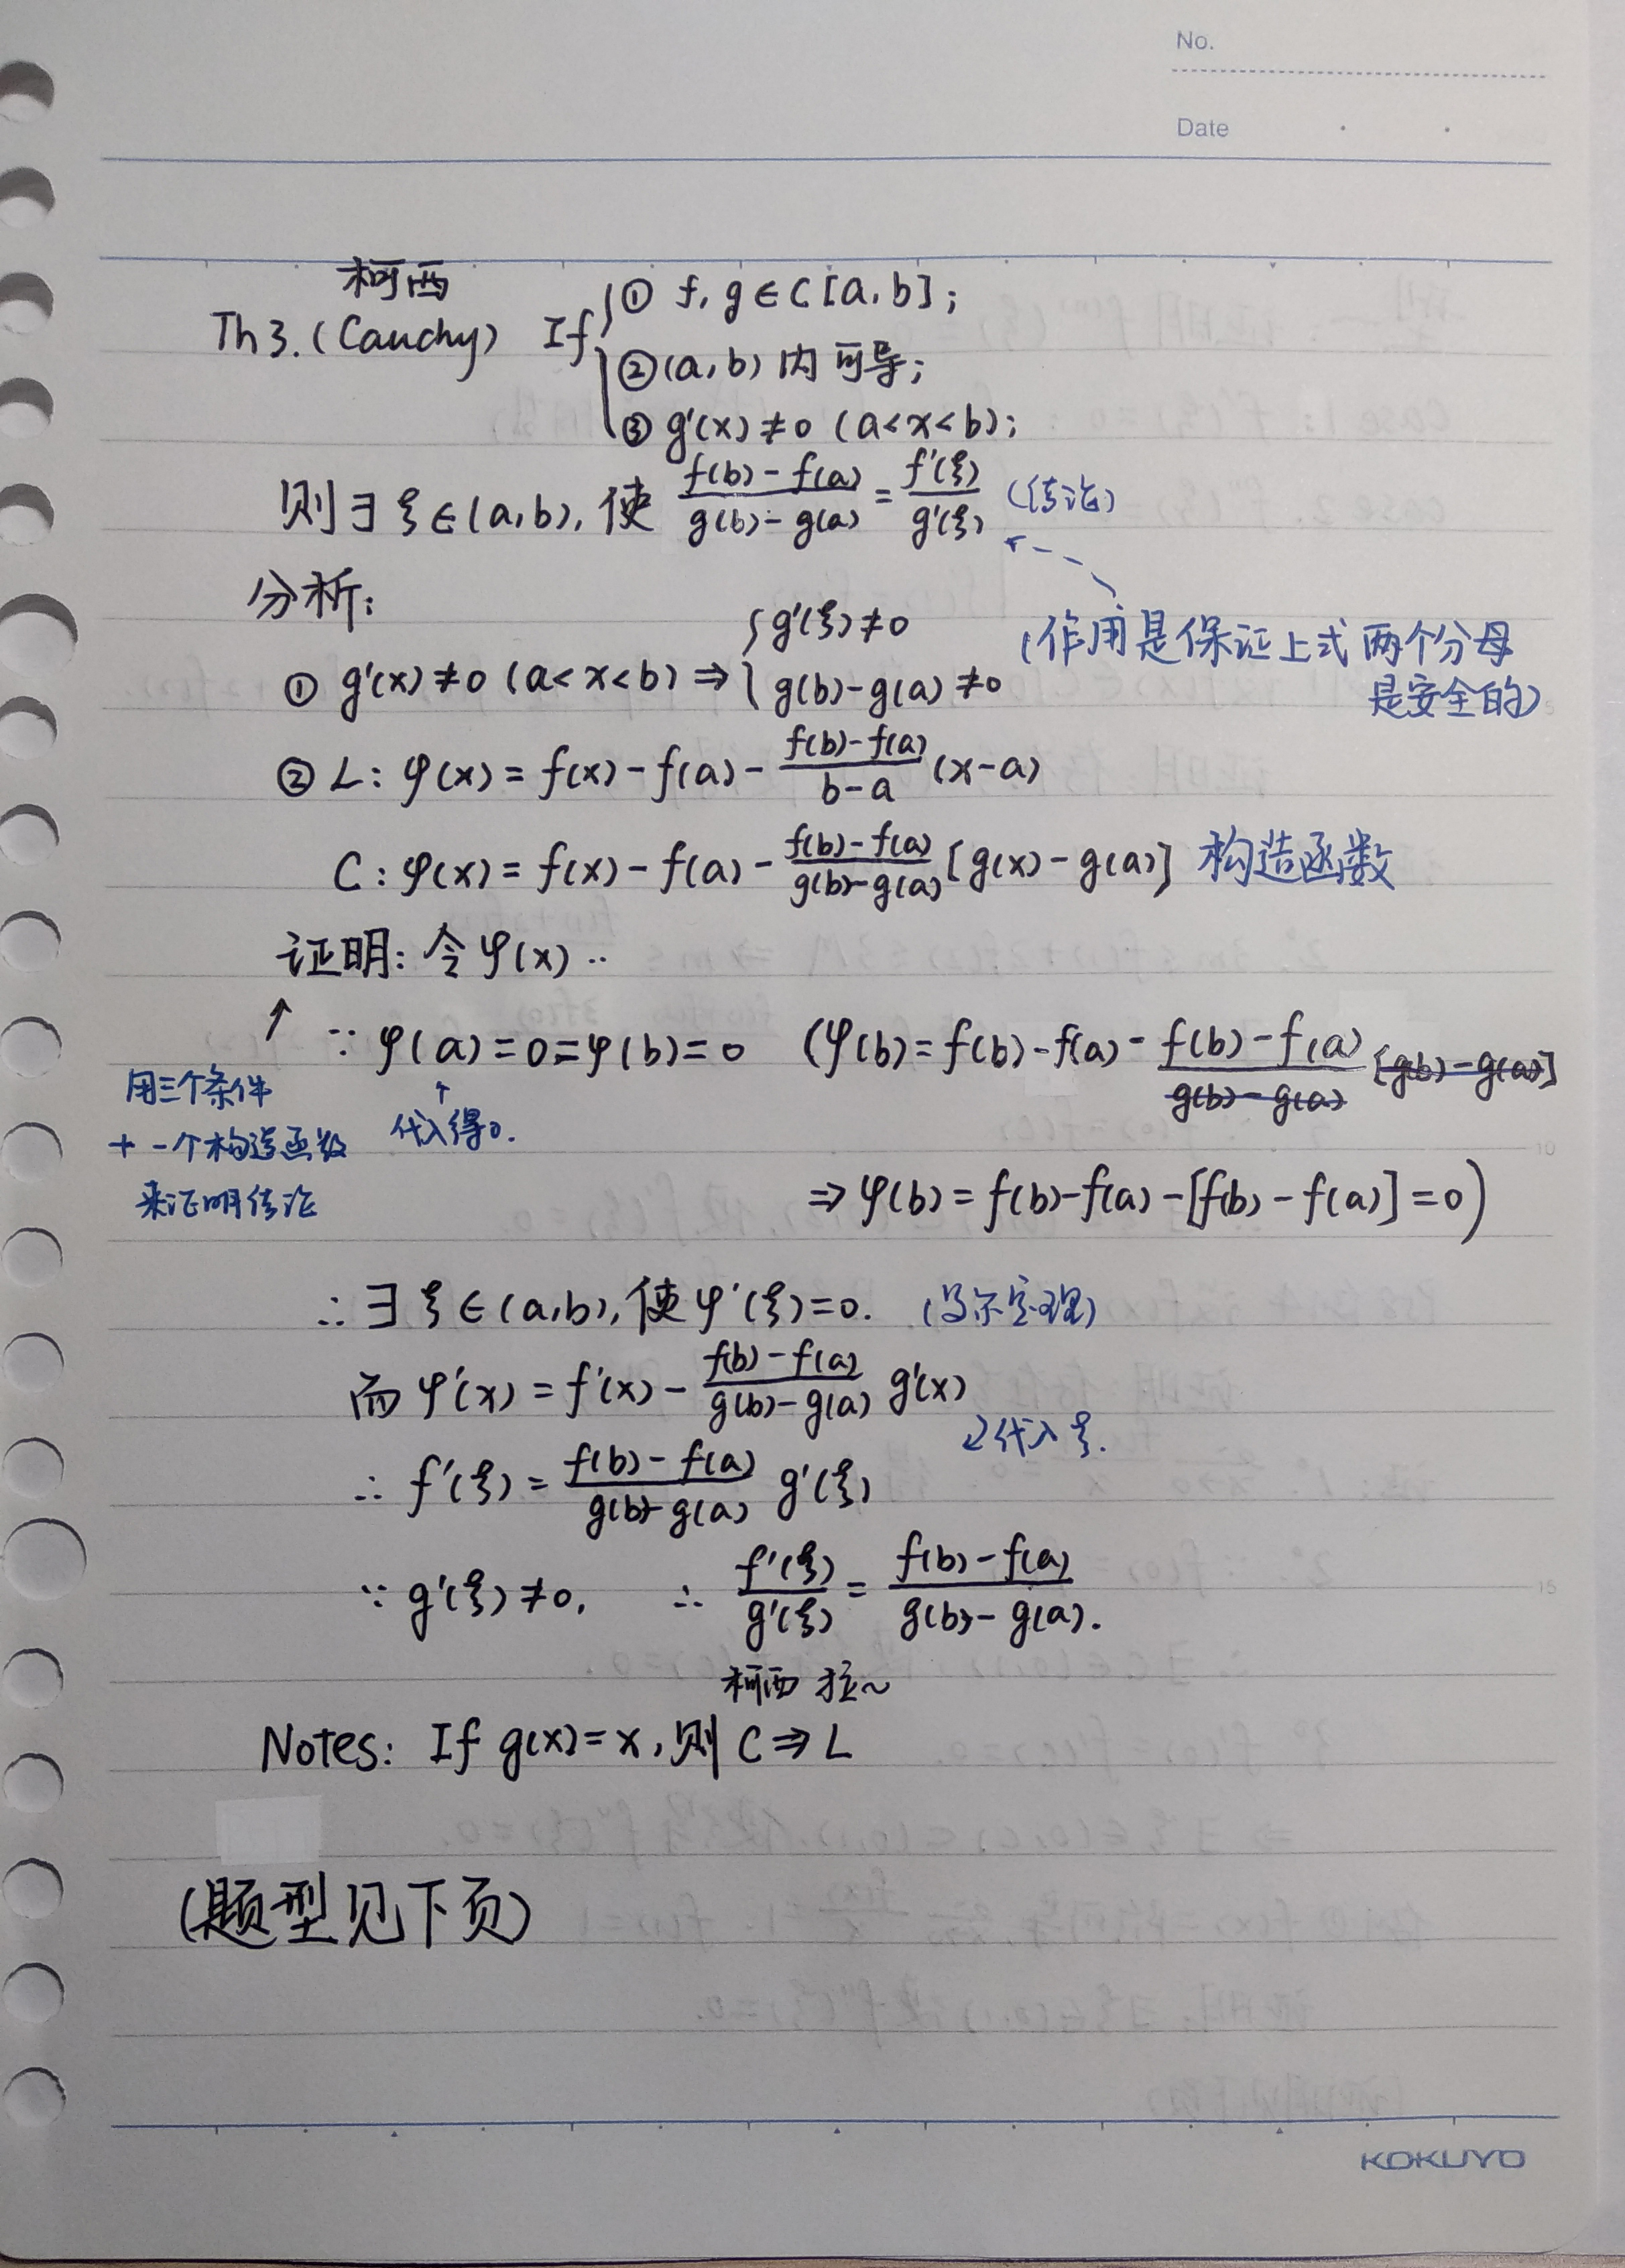 No.
Date
柯西
Th3. (Cauchy) If { ① f, g ∈ C[a, b];
② (a, b) 内可导;
③ g'(x) ≠ 0 (a < x < b);
则 ∃ ξ ∈ (a, b), 使 \frac{f(b) - f(a)}{g(b) - g(a)} = \frac{f'(ξ)}{g'(ξ)} (结论)
分析:
① g'(x) ≠ 0 (a < x < b) ⇒ { g'(ξ) ≠ 0
g(b) - g(a) ≠ 0
(作用是保证上式两个分母
是安全的)
② L: φ(x) = f(x) - f(a) - \frac{f(b) - f(a)}{b - a} (x - a)
C: φ(x) = f(x) - f(a) - \frac{f(b) - f(a)}{g(b) - g(a)} [g(x) - g(a)] 构造函数
证明: 令 φ(x) ··
↑ ∵ φ(a) = 0 = φ(b) = 0 (φ(b) = f(b) - f(a) - \frac{f(b) - f(a)}{g(b) - g(a)} [g(b) - g(a)]
用三个条件
+ 一个构造函数
来证明结论
↑
代入得0.
⇒ φ(b) = f(b) - f(a) - [f(b) - f(a)] = 0)
∴ ∃ ξ ∈ (a, b), 使 φ'(ξ) = 0. (罗尔定理)
而 φ'(x) = f'(x) - \frac{f(b) - f(a)}{g(b) - g(a)} g'(x)
↙代入 ξ.
∴ f'(ξ) = \frac{f(b) - f(a)}{g(b) - g(a)} g'(ξ)
∵ g'(ξ) ≠ 0, ∴ \frac{f'(ξ)}{g'(ξ)} = \frac{f(b) - f(a)}{g(b) - g(a)}.
柯西 拉~
Notes: If g(x) = x, 则 C ⇒ L
(题型见下页)
KOKUYO